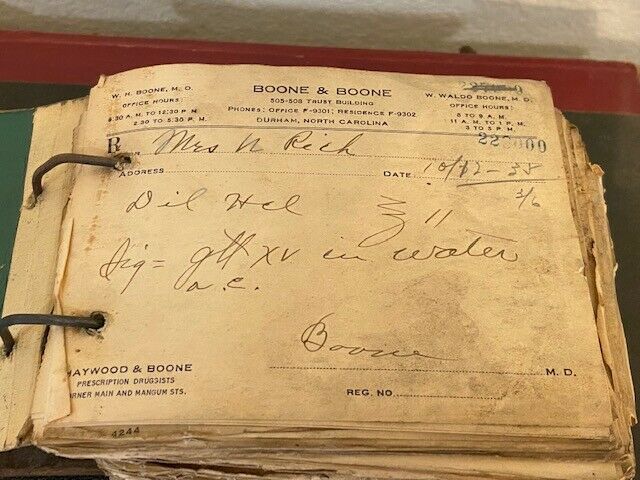 W. H. BOONE, M. D.
OFFICE HOURS:
8.30 A. M. TO 12:30 P. M.
2.30 TO 5:30 P. M.
BOONE & BOONE
505-508 TRUST BUILDING
PHONES: OFFICE F-9301; RESIDENCE F-9302
DURHAM, NORTH CAROLINA
W. WALDO BOONE, M. D.
OFFICE HOURS:
8 TO 9 A. M.
11 A. M. TO 1 P. M.
3 TO 5 P. M.
R
Mrs W Rich
ADDRESS
DATE 10/12-38
Dil Hcl ℥ 11
Sig = gtt XV in water
a. c.
Boone
M. D.
REG. NO.
HAYWOOD & BOONE
PRESCRIPTION DRUGGISTS
CORNER MAIN AND MANGUM STS.
4244